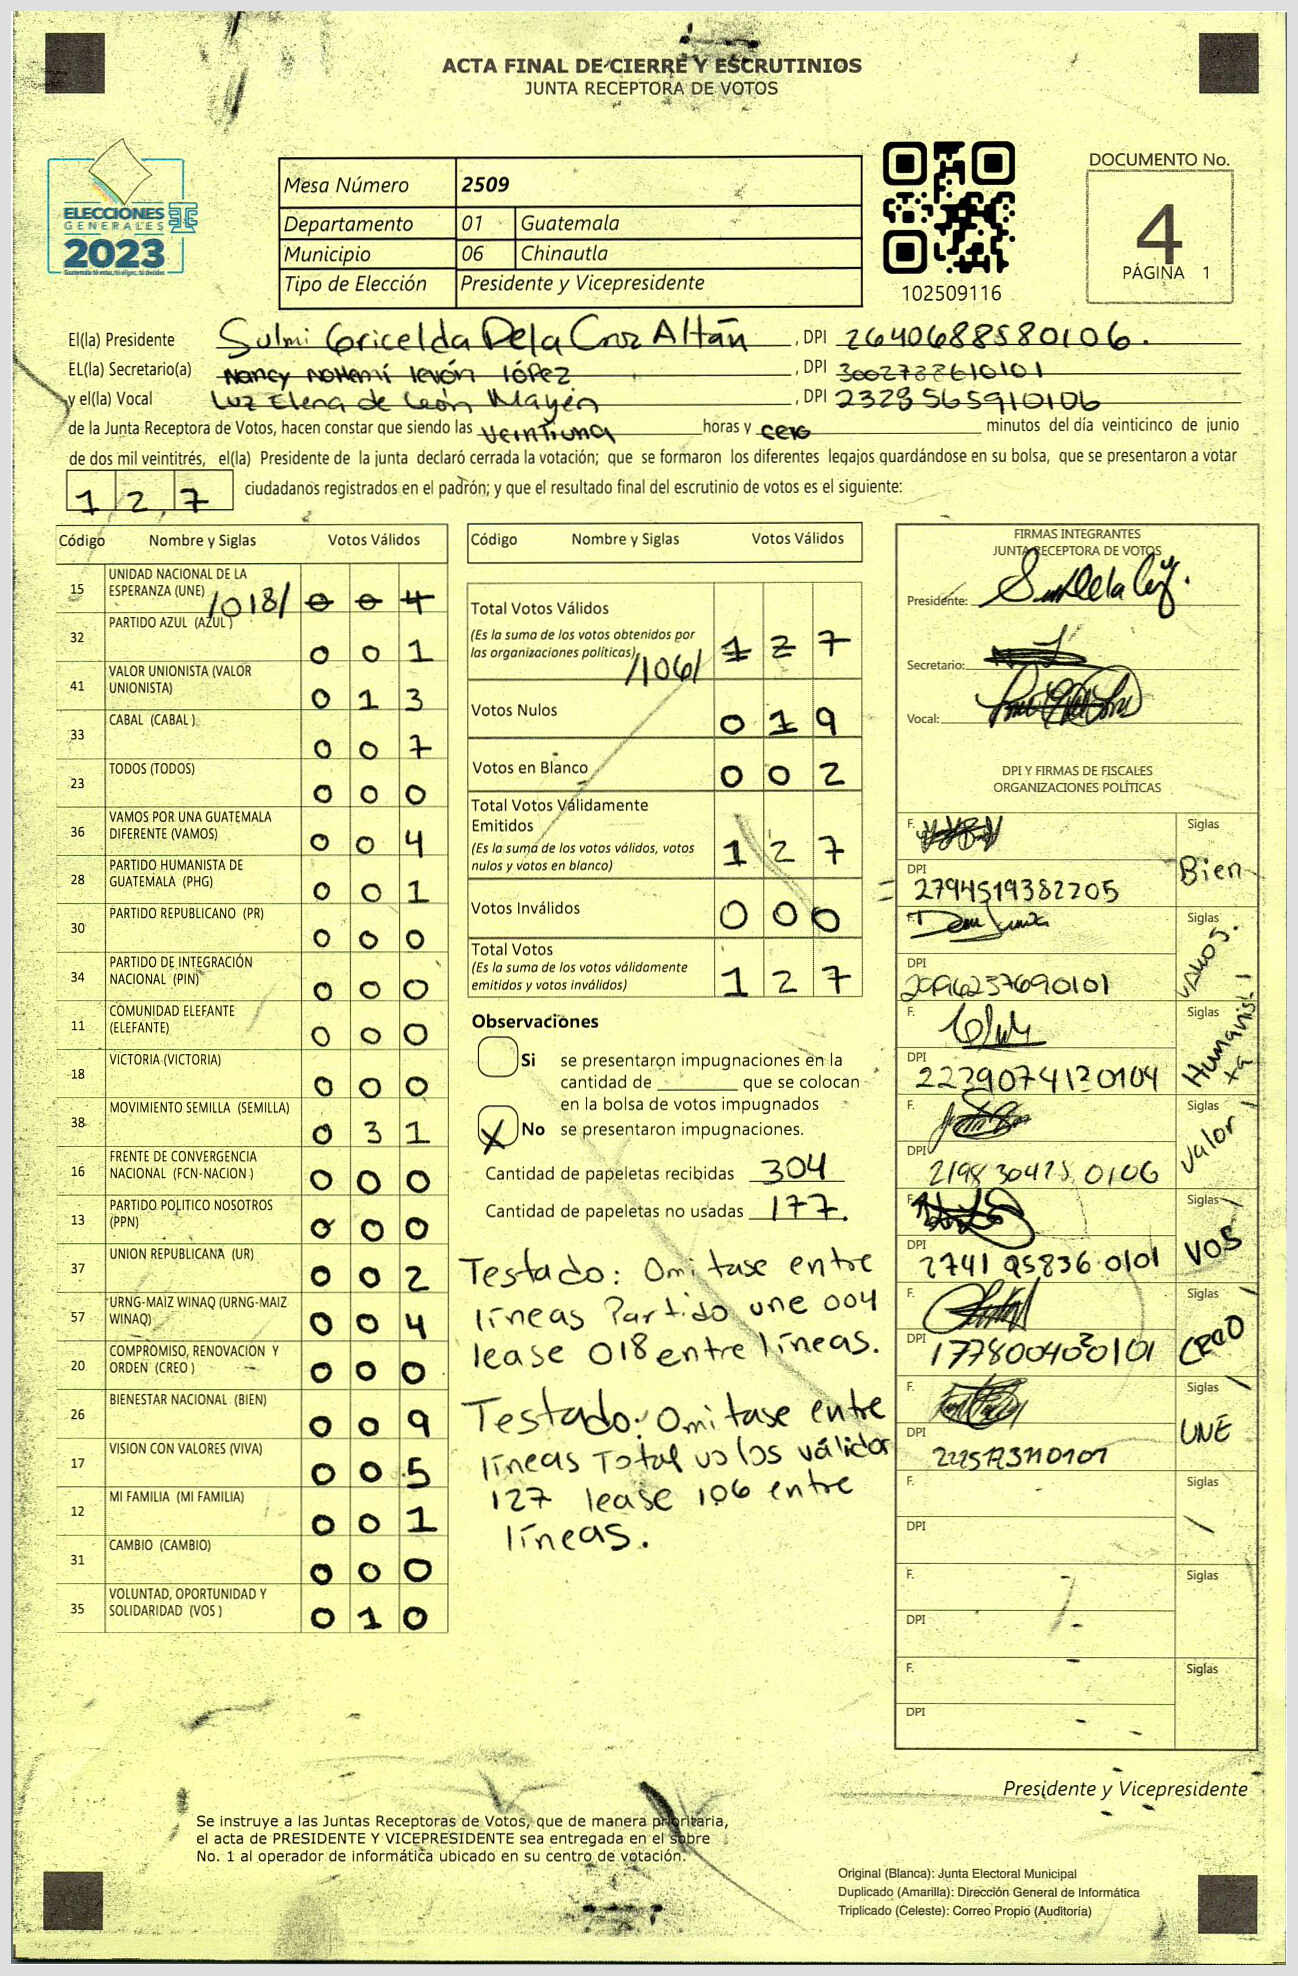 ACTA FINAL DE CIERRE Y ESCRUTINIOS
JUNTA RECEPTORA DE VOTOS
ELECCIONES
GENERALES
2023
Mesa Número 2509
Departamento 01 Guatemala
Municipio 06 Chinautla
Tipo de Elección Presidente y Vicepresidente
102509116
DOCUMENTO No.
4
PÁGINA 1
El(la) Presidente Sulmi Gricelda De la Cruz Altán, DPI 2640688580106.
EL(la) Secretario(a) Nancy Nohemí López, DPI 3002788610101
y el(la) Vocal Luz Elena de León Mayén, DPI 2328565910106
de la Junta Receptora de Votos, hacen constar que siendo las veintiuna horas y cero minutos del día veinticinco de junio
de dos mil veintitrés, el(la) Presidente de la junta declaró cerrada la votación; que se formaron los diferentes legajos guardándose en su bolsa, que se presentaron a votar
127 ciudadanos registrados en el padrón; y que el resultado final del escrutinio de votos es el siguiente:
Código Nombre y Siglas Votos Válidos
15 UNIDAD NACIONAL DE LA ESPERANZA (UNE) /018/ 0 0 4
32 PARTIDO AZUL (AZUL) 0 0 1
41 VALOR UNIONISTA (VALOR UNIONISTA) 0 1 3
33 CABAL (CABAL) 0 0 7
23 TODOS (TODOS) 0 0 0
36 VAMOS POR UNA GUATEMALA DIFERENTE (VAMOS) 0 0 4
28 PARTIDO HUMANISTA DE GUATEMALA (PHG) 0 0 1
30 PARTIDO REPUBLICANO (PR) 0 0 0
34 PARTIDO DE INTEGRACIÓN NACIONAL (PIN) 0 0 0
11 COMUNIDAD ELEFANTE (ELEFANTE) 0 0 0
18 VICTORIA (VICTORIA) 0 0 0
38 MOVIMIENTO SEMILLA (SEMILLA) 0 3 1
16 FRENTE DE CONVERGENCIA NACIONAL (FCN-NACION) 0 0 0
13 PARTIDO POLITICO NOSOTROS (PPN) 0 0 0
37 UNION REPUBLICANA (UR) 0 0 2
57 URNG-MAIZ WINAQ (URNG-MAIZ WINAQ) 0 0 4
20 COMPROMISO, RENOVACION Y ORDEN (CREO) 0 0 0
26 BIENESTAR NACIONAL (BIEN) 0 0 9
17 VISION CON VALORES (VIVA) 0 0 5
12 MI FAMILIA (MI FAMILIA) 0 0 1
31 CAMBIO (CAMBIO) 0 0 0
35 VOLUNTAD, OPORTUNIDAD Y SOLIDARIDAD (VOS) 0 1 0
Código Nombre y Siglas Votos Válidos
Total Votos Válidos
(Es la suma de los votos obtenidos por
las organizaciones políticas) /106/ 1 2 7
Votos Nulos 0 1 9
Votos en Blanco 0 0 2
Total Votos Válidamente
Emitidos
(Es la suma de los votos válidos, votos
nulos y votos en blanco) 1 2 7
Votos Inválidos 0 0 0
Total Votos
(Es la suma de los votos válidamente
emitidos y votos inválidos) 1 2 7
Observaciones
Si se presentaron impugnaciones en la
cantidad de ________ que se colocan
en la bolsa de votos impugnados
X No se presentaron impugnaciones.
Cantidad de papeletas recibidas 304
Cantidad de papeletas no usadas 177.
Testado: Omitase entre
líneas Partido une 004
lease 018 entre líneas.
Testado: Omitase entre
líneas Total votos válidos
127 lease 106 entre
líneas.
FIRMAS INTEGRANTES
JUNTA RECEPTORA DE VOTOS
Presidente:
Secretario:
Vocal:
DPI Y FIRMAS DE FISCALES
ORGANIZACIONES POLÍTICAS
F. Siglas
Bien
DPI
2794519382205
F. Siglas
Vamos.
DPI
2096237690101
F. Siglas
Humanista
DPI
2229074120104
F. Siglas
Valor
DPI
2198304250106
F. Siglas
VOS
DPI
2741958360101
F. Siglas
CREO
DPI
1778004020101
F. Siglas
UNE
DPI
F. Siglas
DPI
F. Siglas
DPI
F. Siglas
DPI
Presidente y Vicepresidente
Se instruye a las Juntas Receptoras de Votos, que de manera prioritaria,
el acta de PRESIDENTE Y VICEPRESIDENTE sea entregada en el sobre
No. 1 al operador de informática ubicado en su centro de votación.
Original (Blanca): Junta Electoral Municipal
Duplicado (Amarilla): Dirección General de Informática
Triplicado (Celeste): Correo Propio (Auditoría)